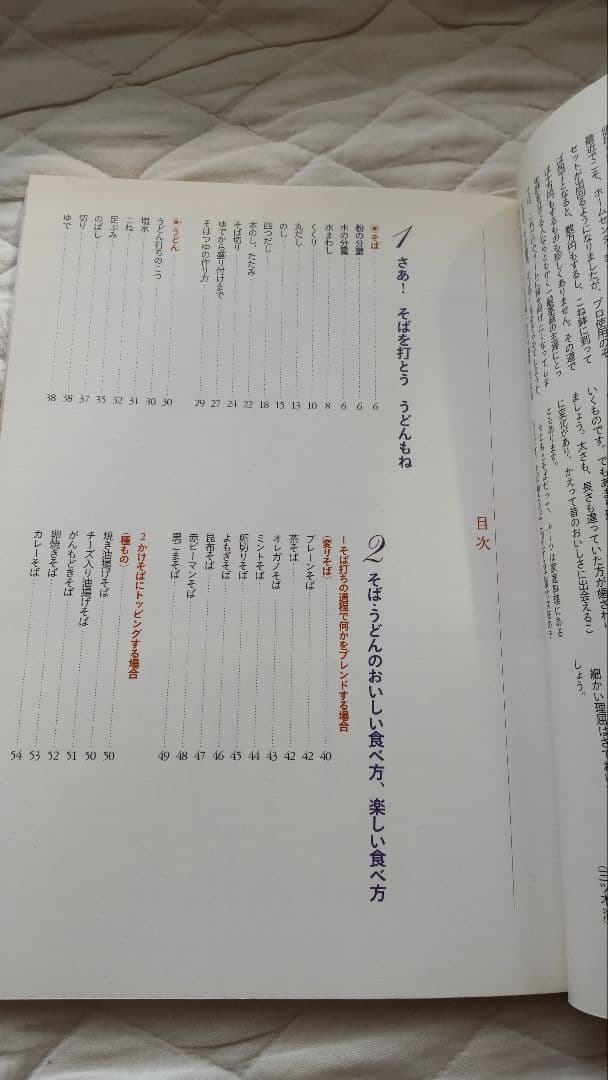 最近でこそ、ホームセンター
セットが出回るようになりましたが、プロ使用のそ
ば包丁となると、数万円もするし、こね鉢に到って
は十万円もするものも珍しくありません。その道で
いくものです。でもあ
ましょう。太さも、長さも違っていた方が癒され
に変化があり、かえって昔のおいしさに出会えるこ
ともあります。
細かい理屈はさておい
しょう。
目次
1 さあ! そばを打とう うどんもね
●そば 6
粉の分量 6
水の分量 6
水まわし 8
くくり 10
丸だし 13
のし 15
四つだし 18
本のし、たたみ 22
そば切り 24
ゆでから盛り付けまで 27
そばつゆの作り方 29
●うどん 30
うどん打ちのこつ 30
塩水 31
こね 32
足ぶみ 35
のばし 37
切り 38
ゆで 38
2 そば・うどんのおいしい食べ方、楽しい食べ方
1 そば打ちの過程で何かをブレンドする場合
(変りそば) 40
プレーンそば 42
茶そば 42
オレガノそば 43
ミントそば 44
卵切りそば 45
よもぎそば 46
昆布そば 47
赤ピーマンそば 48
黒ごまそば 49
2 かけそばにトッピングする場合
(種もの) 50
焼き油揚げそば 50
チーズ入り油揚げそば 51
がんもどきそば 52
卵焼きそば 53
カレーそば 54